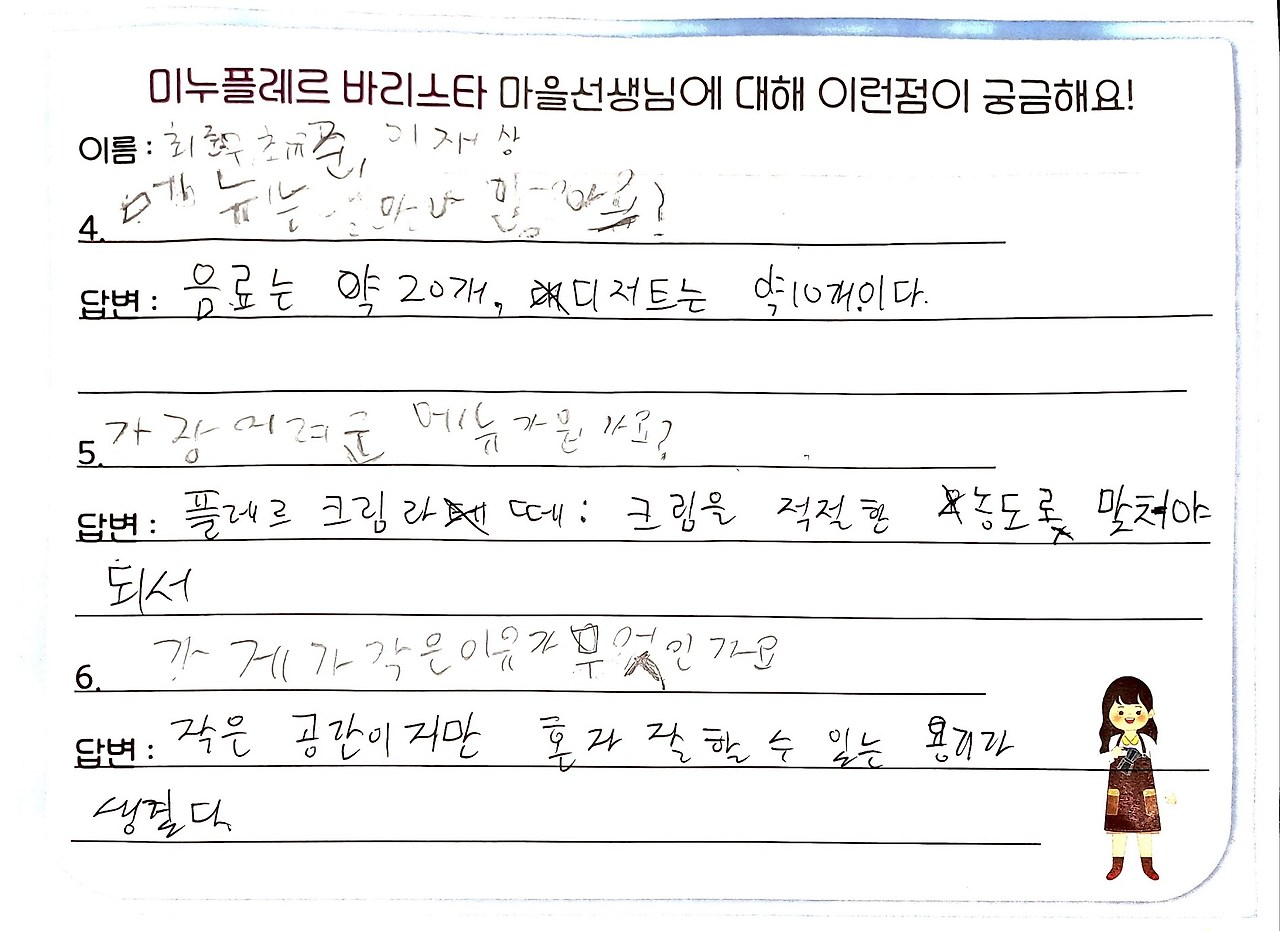 미누플레르 바리스타 마을선생님에 대해 이런점이 궁금해요!
이름 : 최 초규준, 이재상
4. 메뉴는 얼마나
답변 : 음료는 약 20개, 디저트는 약10개이다.
5. 가장 어려운 메뉴가뭔가요?
답변 : 플레르 크림 라떼: 크림을 적절한 농도로 맞처야
되서
6. 가게가 작은이유가 무엇인가요
답변 : 작은 공간이지만 혼자 잘 할 수 있는 용기라
생결다.